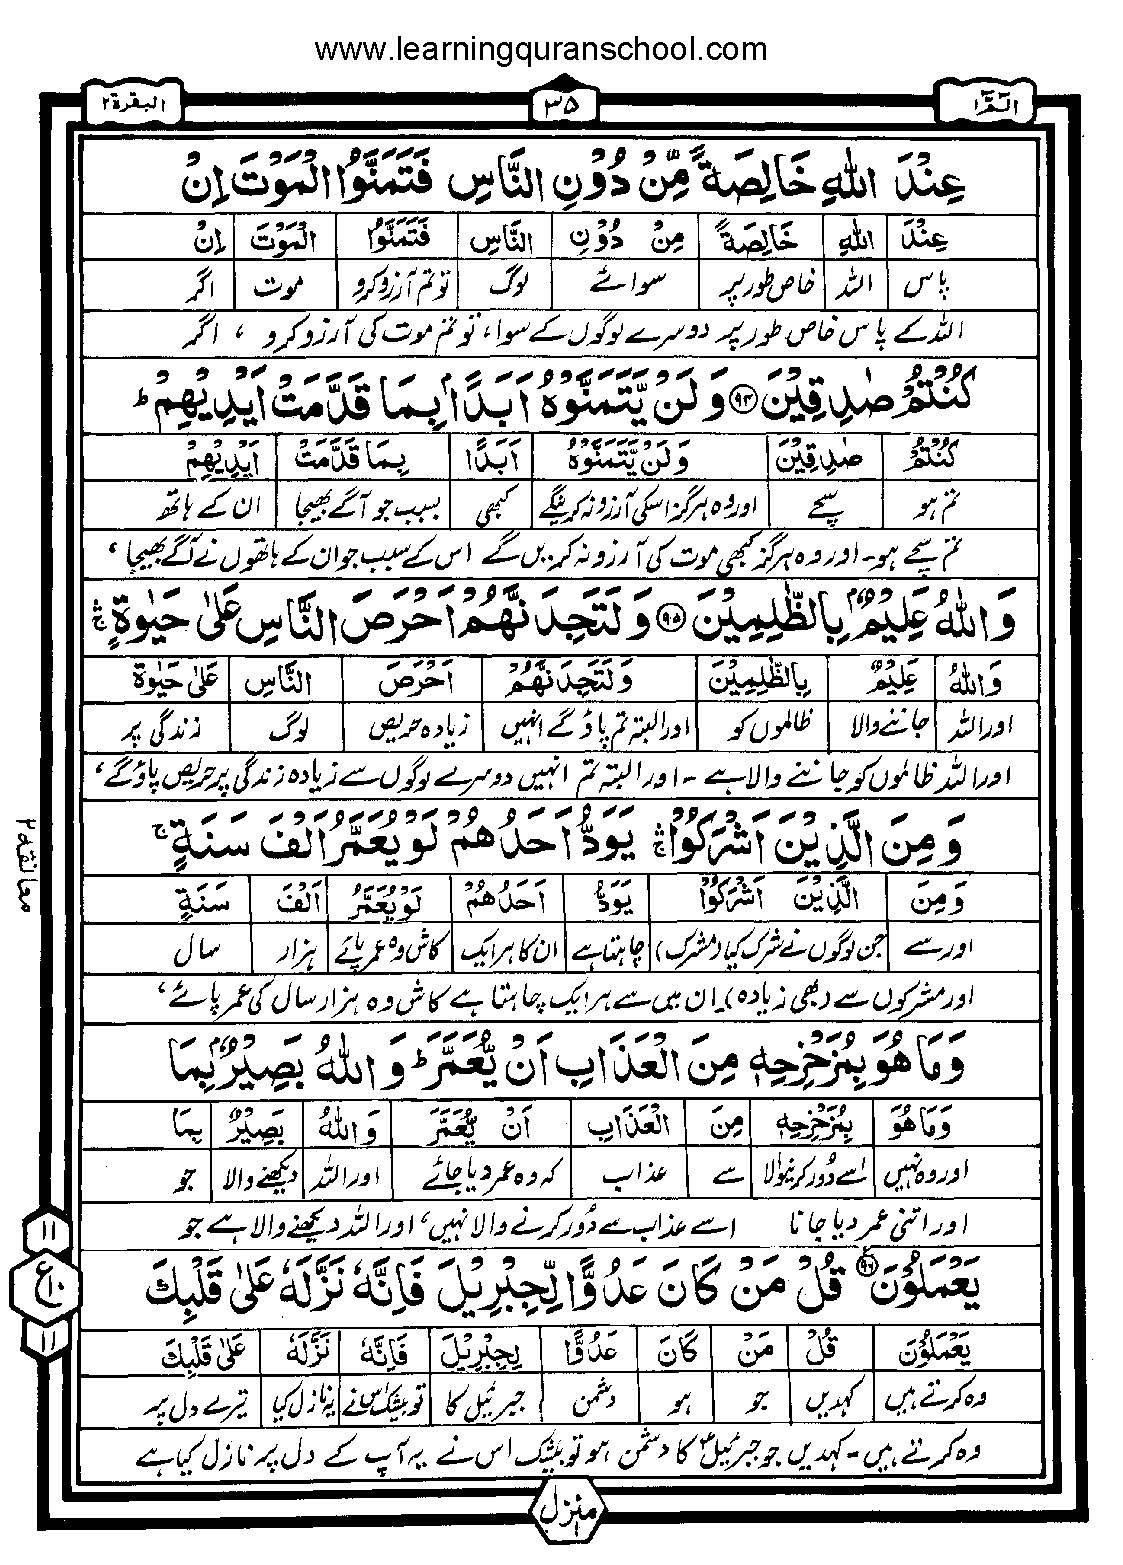 www.learningquranschool.com
الٓمّٓ ١ ٣٥ البقرة ٢
عِنْدَ اللّٰهِ خَالِصَةً مِّنْ دُوْنِ النَّاسِ فَتَمَنَّوُا الْمَوْتَ اِنْ
عِنْدَ اللّٰهِ خَالِصَةً مِنْ دُوْنِ النَّاسِ فَتَمَنَّوُا الْمَوْتَ اِنْ
پاس اللہ خاص طور پر سوائے لوگ تو تم آرزو کرو موت اگر
اللہ کے پاس خاص طور پر دوسرے لوگوں کے سوا، تو تم موت کی آرزو کرو ، اگر
كُنْتُمْ صٰدِقِيْنَ ﴿٩٤﴾ وَلَنْ يَّتَمَنَّوْهُ اَبَدًۢا بِمَا قَدَّمَتْ اَيْدِيْهِمْ ؕ
كُنْتُمْ صٰدِقِيْنَ وَلَنْ يَّتَمَنَّوْهُ اَبَدًا بِمَا قَدَّمَتْ اَيْدِيْهِمْ
تم ہو سچے اور وہ ہرگز اسکی آرزو نہ کرینگے کبھی بسبب جو آگے بھیجا ان کے ہاتھ
تم سچے ہو۔ اور وہ ہرگز کبھی موت کی آرزو نہ کریں گے اس کے سبب جو ان کے ہاتھوں نے آگے بھیجا ،
وَاللّٰهُ عَلِيْمٌۢ بِالظّٰلِمِيْنَ ﴿٩٥﴾ وَلَتَجِدَنَّهُمْ اَحْرَصَ النَّاسِ عَلٰى حَيٰوةٍ ۛۚ
وَاللّٰهُ عَلِيْمٌ بِالظّٰلِمِيْنَ وَلَتَجِدَنَّهُمْ اَحْرَصَ النَّاسِ عَلٰى حَيٰوةٍ
اور اللہ جاننے والا ظالموں کو اور البتہ تم پاؤ گے انہیں زیادہ حریص لوگ زندگی پر
اور اللہ ظالموں کو جاننے والا ہے ۔ اور البتہ تم انہیں دوسرے لوگوں سے زیادہ زندگی پر حریص پاؤگے ،
وَمِنَ الَّذِيْنَ اَشْرَكُوْا ۛۚ يَوَدُّ اَحَدُهُمْ لَوْ يُعَمَّرُ اَلْفَ سَنَةٍ ۚ
معانقه ٢
وَمِنَ الَّذِيْنَ اَشْرَكُوْا يَوَدُّ اَحَدُهُمْ لَوْ يُعَمَّرُ اَلْفَ سَنَةٍ
اور سے جن لوگوں نے شرک کیا (مشرک) چاہتا ہے ان کا ہر ایک کاش وہ عمر پائے ہزار سال
اور مشرکوں سے (بھی زیادہ)۔ ان میں سے ہر ایک چاہتا ہے کاش وہ ہزار سال کی عمر پائے ،
وَمَا هُوَ بِمُزَحْزِحِهٖ مِنَ الْعَذَابِ اَنْ يُّعَمَّرَ ؕ وَاللّٰهُ بَصِيْرٌۢ بِمَا
وَمَا هُوَ بِمُزَحْزِحِهٖ مِنَ الْعَذَابِ اَنْ يُّعَمَّرَ وَاللّٰهُ بَصِيْرٌ بِمَا
اور وہ نہیں اسے دور کرنیوالا سے عذاب کہ وہ عمر دیا جائے اور اللہ دیکھنے والا جو
اور اتنی عمر دیا جانا اسے عذاب سے دُور کرنے والا نہیں ، اور اللہ دیکھنے والا ہے جو
يَعْمَلُوْنَ ﴿٩٦﴾ قُلْ مَنْ كَانَ عَدُوًّا لِّجِبْرِيْلَ فَاِنَّهٗ نَزَّلَهٗ عَلٰى قَلْبِكَ
١١ ع ١٠ ١١
يَعْمَلُوْنَ قُلْ مَنْ كَانَ عَدُوًّا لِجِبْرِيْلَ فَاِنَّهٗ نَزَّلَهٗ عَلٰى قَلْبِكَ
وہ کرتے ہیں کہدیں جو ہو دشمن جبرئیل کا تو بیشک اس نے یہ نازل کیا تیرے دل پر
وہ کرتے ہیں۔ کہدیں جو جبرئیلؑ کا دشمن ہو تو بیشک اس نے یہ آپ کے دل پر نازل کیا ہے
منزل ١